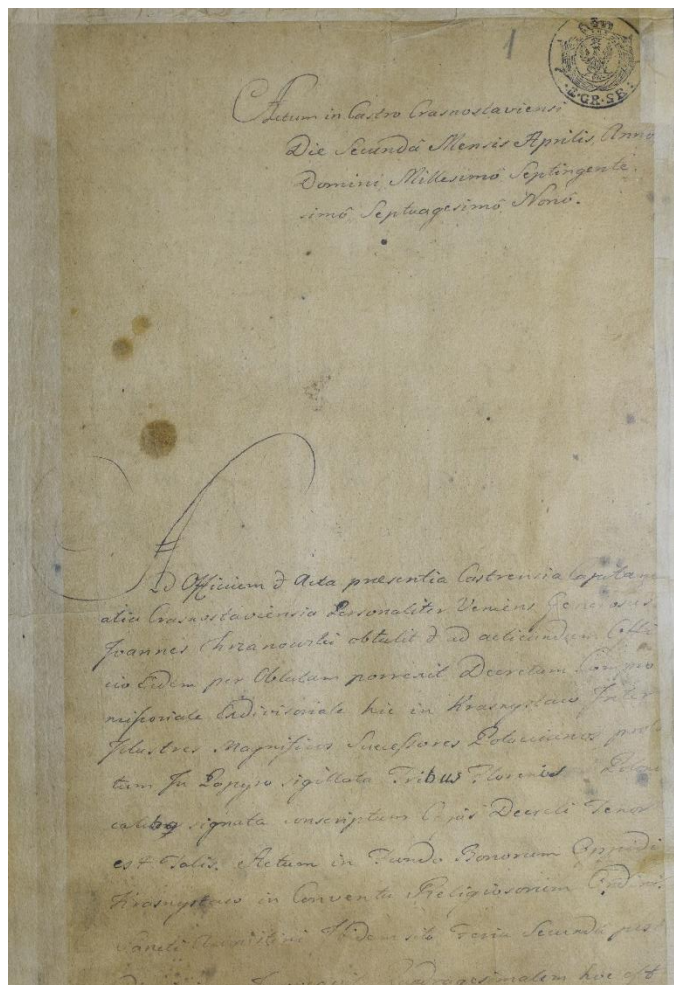 1
GR·SR
Actum in Castro Crasnostaviensi
Die Secundâ Mensis Aprilis, Anno
Domini, Millesimô Septingente
simô Septuagesimô Nonô.
Ad Officium & Acta presentia Castrensia Capitane
alia Crasnostaviensia Personaliter Veniens Generosus
Joannes Chrzanowski obtulit & ad acticandum Offi
cio Eidem per Oblatam porrexit Decretum Compro
missoriale Exdivisoriale hic in Krasnystaw Inter
Illustres Magnificos Successores prola
tum In Papyro sigillata Tribus Florenis
signata conscriptum Cujus Decreti Tenor
est Talis. Actum in Fundo Bonorum Oppidi
Krasnystaw in Conventu Religiosorum Ordinis
Sancti Augustini Ibidem sito Feria Secunda post
hoc est